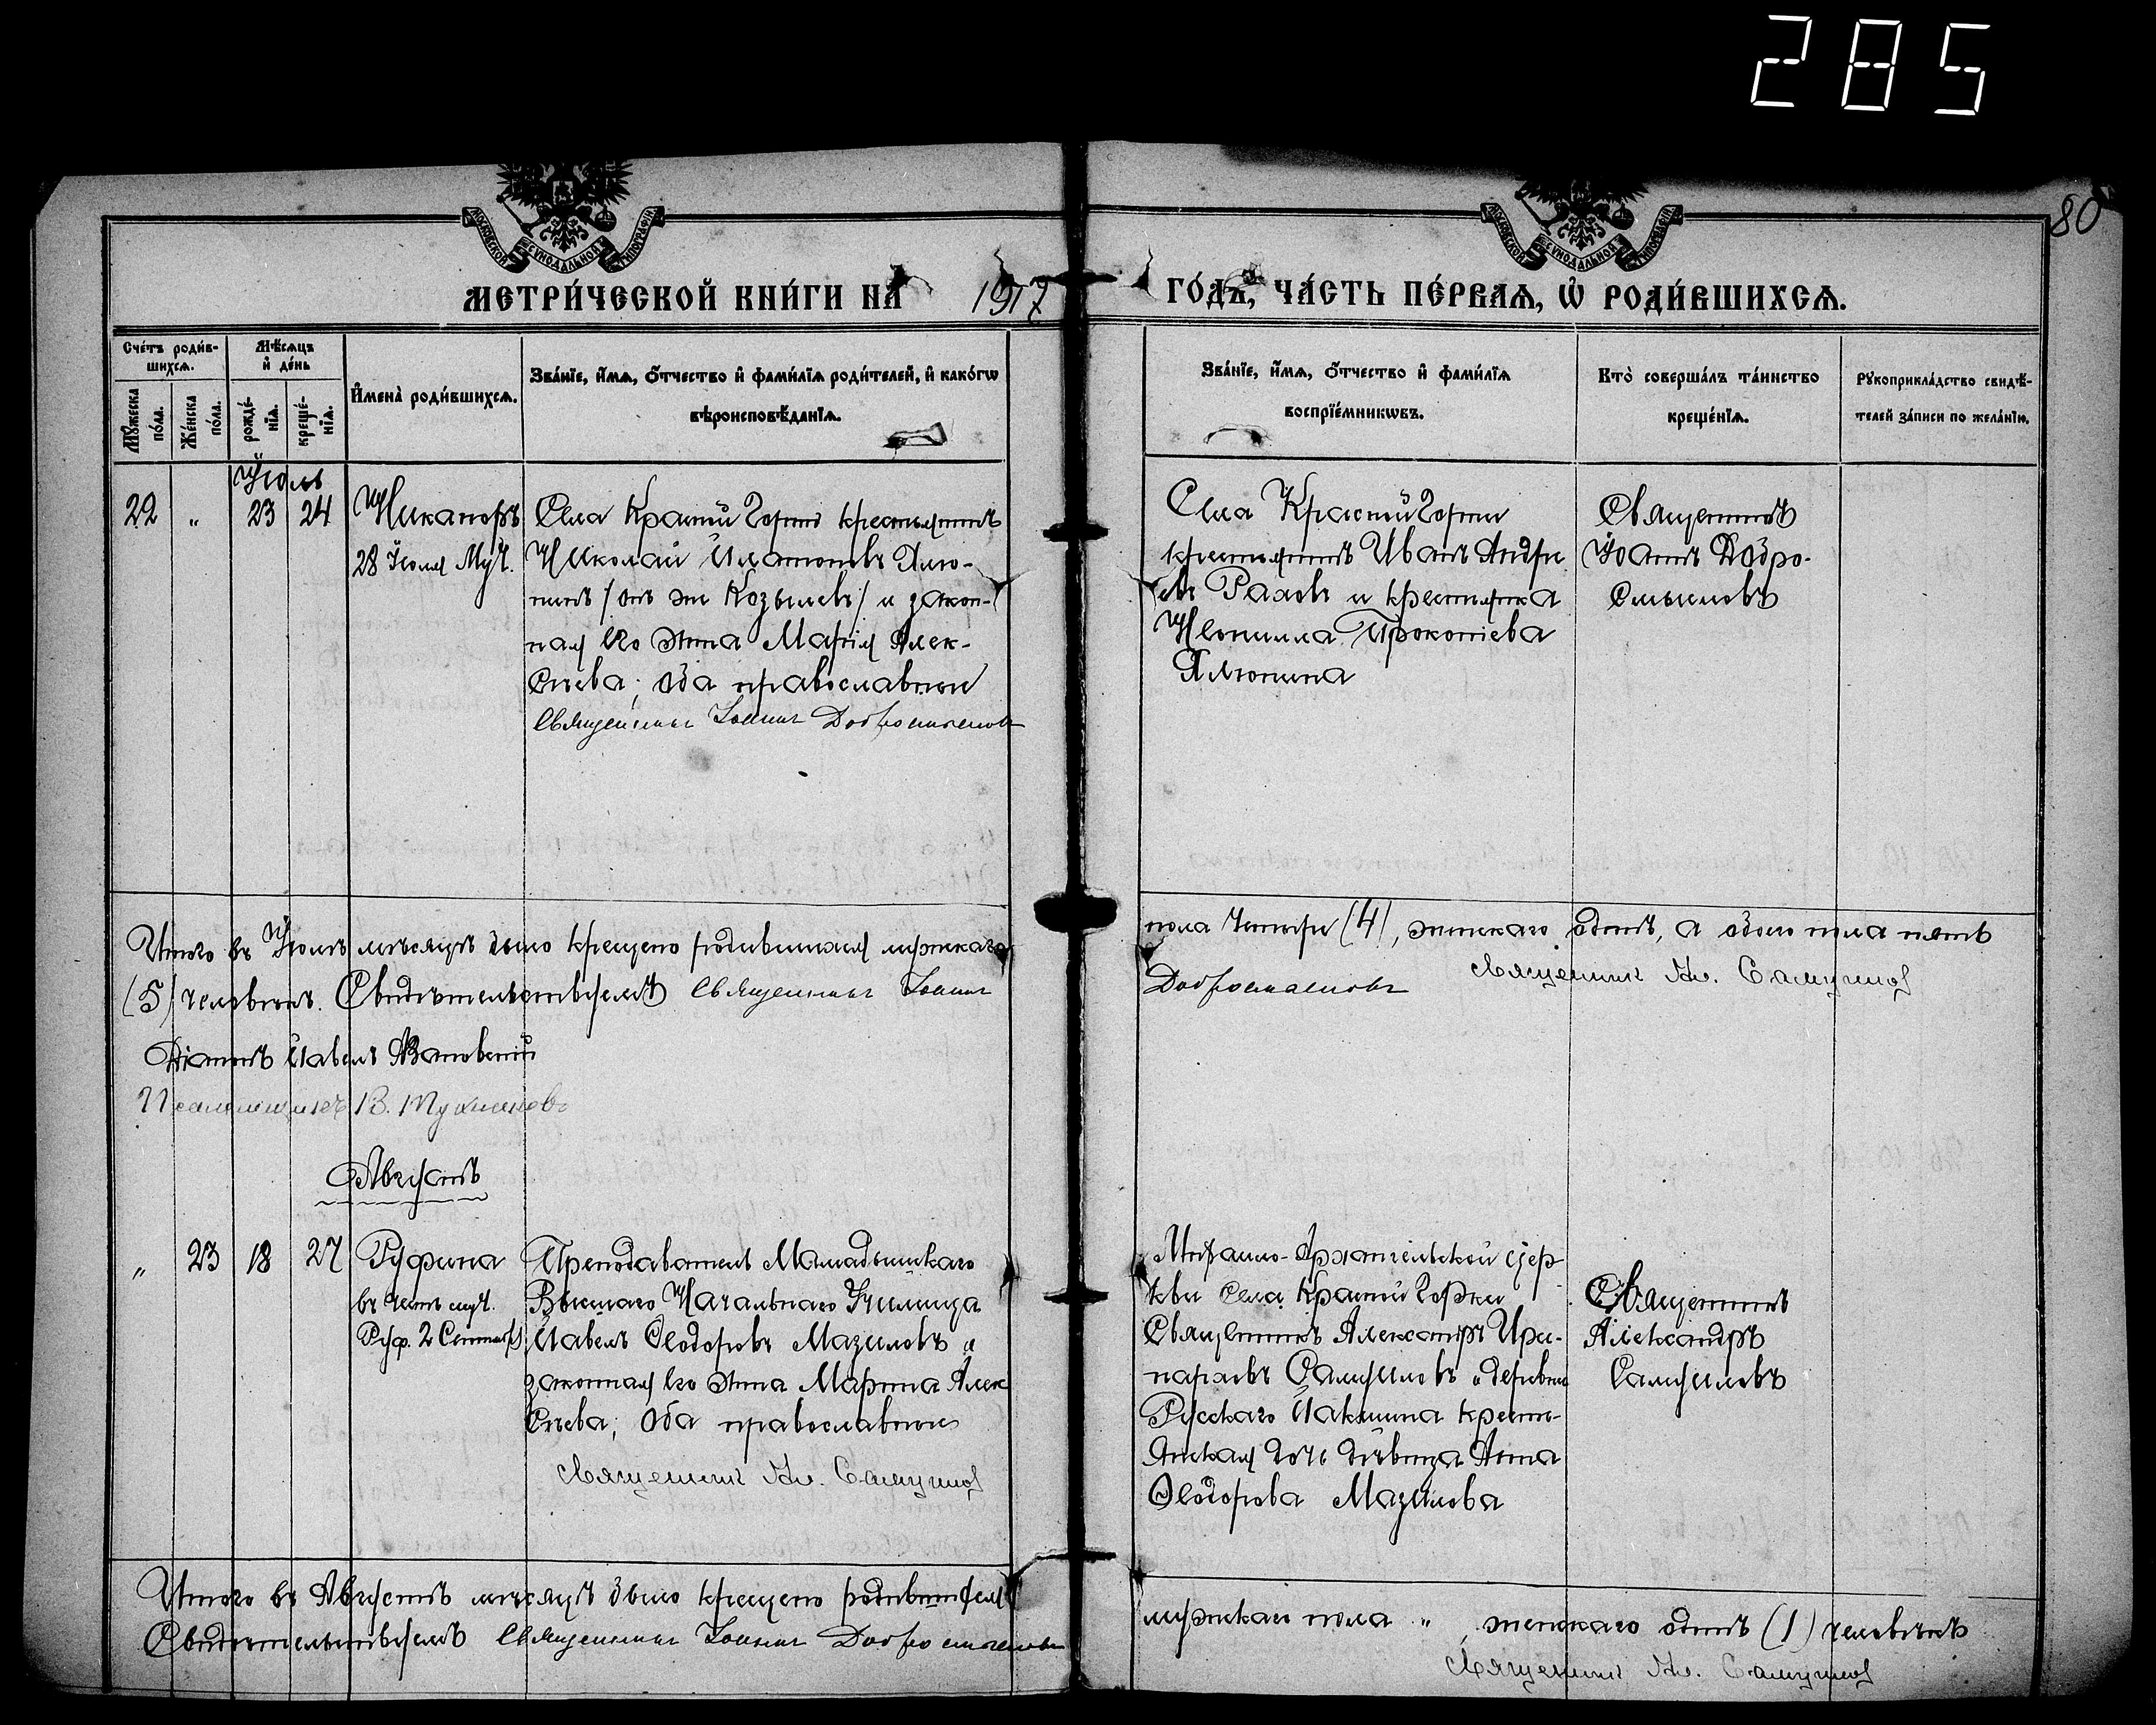 285
80
МОСКОВСКОЙ СѴНОДАЛЬНОЙ ТИПОГРАФІИ
МОСКОВСКОЙ СѴНОДАЛЬНОЙ ТИПОГРАФІИ
МЕТРИ́ЧЕСКОЙ КНИ́ГИ НА 1917 ГО́ДЪ, ЧА́СТЬ ПЕ́РВАЯ, Ѡ РОДИ́ВШИХСЯ.
Сче́тъ роди́в-
шихся.
Мꙋ́жеска
по́ла.
Же́нска
по́ла.
Мѣ́сяцъ
и де́нь
рожде́-
нія.
креще́-
нія.
Имена̀ роди́вшихся.
Зва́ніе, и́мя, о́тчество и фами́лія роди́телей, и како́гѡ
вѣроисповѣ́данія.
Зва́ніе, и́мя, о́тчество и фами́лія
воспріе́мникѡвъ.
Кто̀ соверша́лъ та́инство
креще́нія.
Рꙋкоприкла́дство свидѣ́-
телей за́писи по жела́нію.
Іюль
22 " 23 24
Никаноръ
28 Іюля Муч.
Села Красной Горки крестьянинъ
Николай Платоновъ Алю-
нинъ /онъ же Козыревъ/ и закон-
ная его жена Марія Алек-
сѣева; оба православные
Священникъ Іоаннъ Добросмысловъ
Села Красной Горки
крестьянинъ Иванъ Андре
евъ Раховъ и крестьянка
Неонилла Прокопіева
Алюнина
Священникъ
Іоаннъ Добро-
смысловъ
Итого въ Іюлѣ мѣсяцѣ было крещено родившихся мужскаго
пола четыре (4), женскаго одинъ, а обоего пола пять
(5) человѣкъ. Свидѣтельствуемъ Священникъ Іоаннъ
Добросмысловъ Священникъ Ал. Самуилов
Діаконъ Павелъ
Псаломщикъ В.
Августъ
" 23 18 27
Руфина
въ честь муч.
Руф. 2 Сентяб.
Преподаватель Мамадышскаго
Высшаго Начальнаго Училища
Павелъ Ѳеодоровъ Мазиловъ и
законная его жена Марина Алек
сѣева; оба православные
Священникъ Ал. Самуилов
Михаило-Архангельской Цер-
кви села Красной Горки
Священникъ Александръ Ири-
нарховъ Самуиловъ и деревни
Русскаго Пакшина кресть-
янская дочь дѣвица Анна
Ѳеодорова Мазилова
Священникъ
Александръ
Самуиловъ
Итого въ Августѣ мѣсяцѣ было крещено родившихся
мужскаго пола " , женскаго одинъ (1) человѣкъ
Свидѣтельствуемъ Священникъ Іоаннъ Добросмысловъ
Священникъ Ал. Самуилов